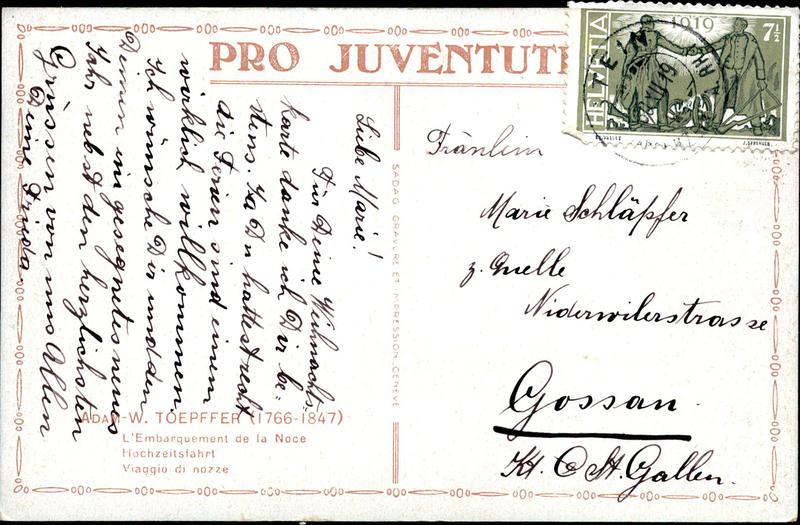 PRO JUVENTUT
HELVETIA
1919
7½
TEIN
Liebe Marie!
Für Deine Weihnachts-
karte danke ich Dir be-
stens. Ja Du hattest recht
die Ferien sind einem
wirklich willkommen.
Ich wünsche Dir und den
Deinen ein gesegnetes neues
Jahr nebst den herzlichsten
Grüssen von uns Allen
Deine Frida
SADAG GRAVURE ET IMPRESSION, GENÈVE
Fränlein
Marie Schläpfer
z. Quelle
Niderwilerstrasse
Gossau
Kt. St. Gallen.
ADAM-W. TOEPFFER (1766-1847)
L'Embarquement de la Noce
Hochzeitsfahrt
Viaggio di nozze